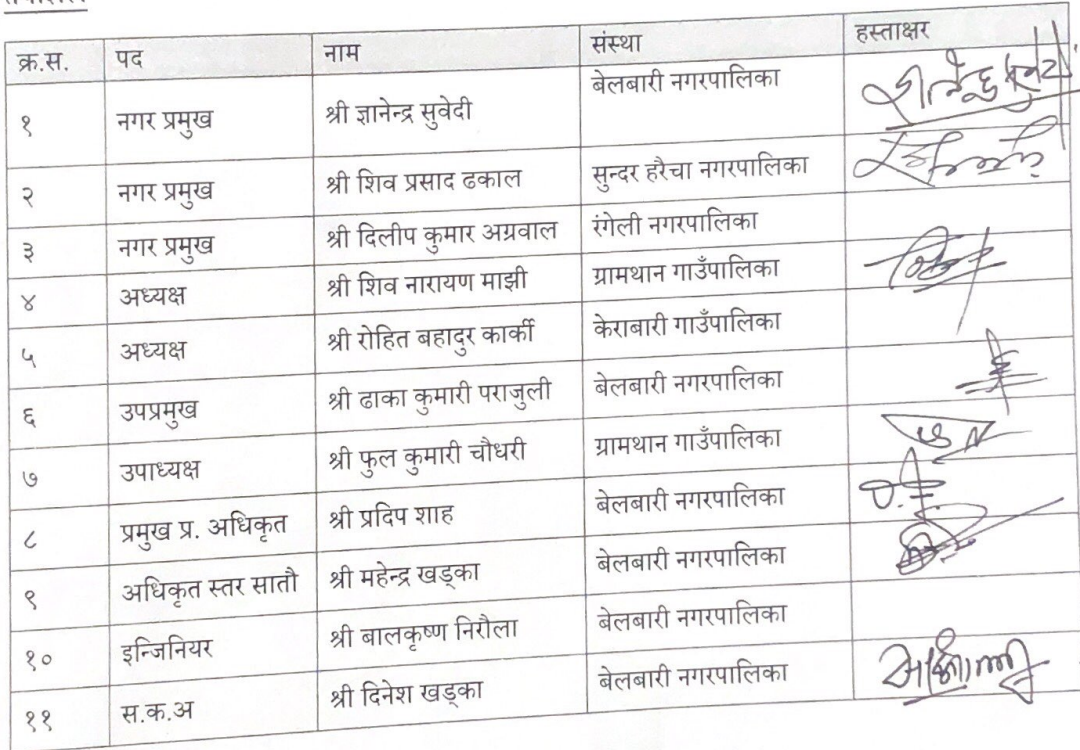 क्र.स. पद नाम संस्था हस्ताक्षर
१ नगर प्रमुख श्री ज्ञानेन्द्र सुवेदी बेलबारी नगरपालिका
२ नगर प्रमुख श्री शिव प्रसाद ढकाल सुन्दर हरैचा नगरपालिका
३ नगर प्रमुख श्री दिलीप कुमार अग्रवाल रंगेली नगरपालिका
४ अध्यक्ष श्री शिव नारायण माझी ग्रामथान गाउँपालिका
५ अध्यक्ष श्री रोहित बहादुर कार्की केराबारी गाउँपालिका
६ उपप्रमुख श्री ढाका कुमारी पराजुली बेलबारी नगरपालिका
७ उपाध्यक्ष श्री फुल कुमारी चौधरी ग्रामथान गाउँपालिका
८ प्रमुख प्र. अधिकृत श्री प्रदिप शाह बेलबारी नगरपालिका
९ अधिकृत स्तर सातौ श्री महेन्द्र खड्का बेलबारी नगरपालिका
१० इन्जिनियर श्री बालकृष्ण निरौला बेलबारी नगरपालिका
११ स.क.अ श्री दिनेश खड्का बेलबारी नगरपालिका